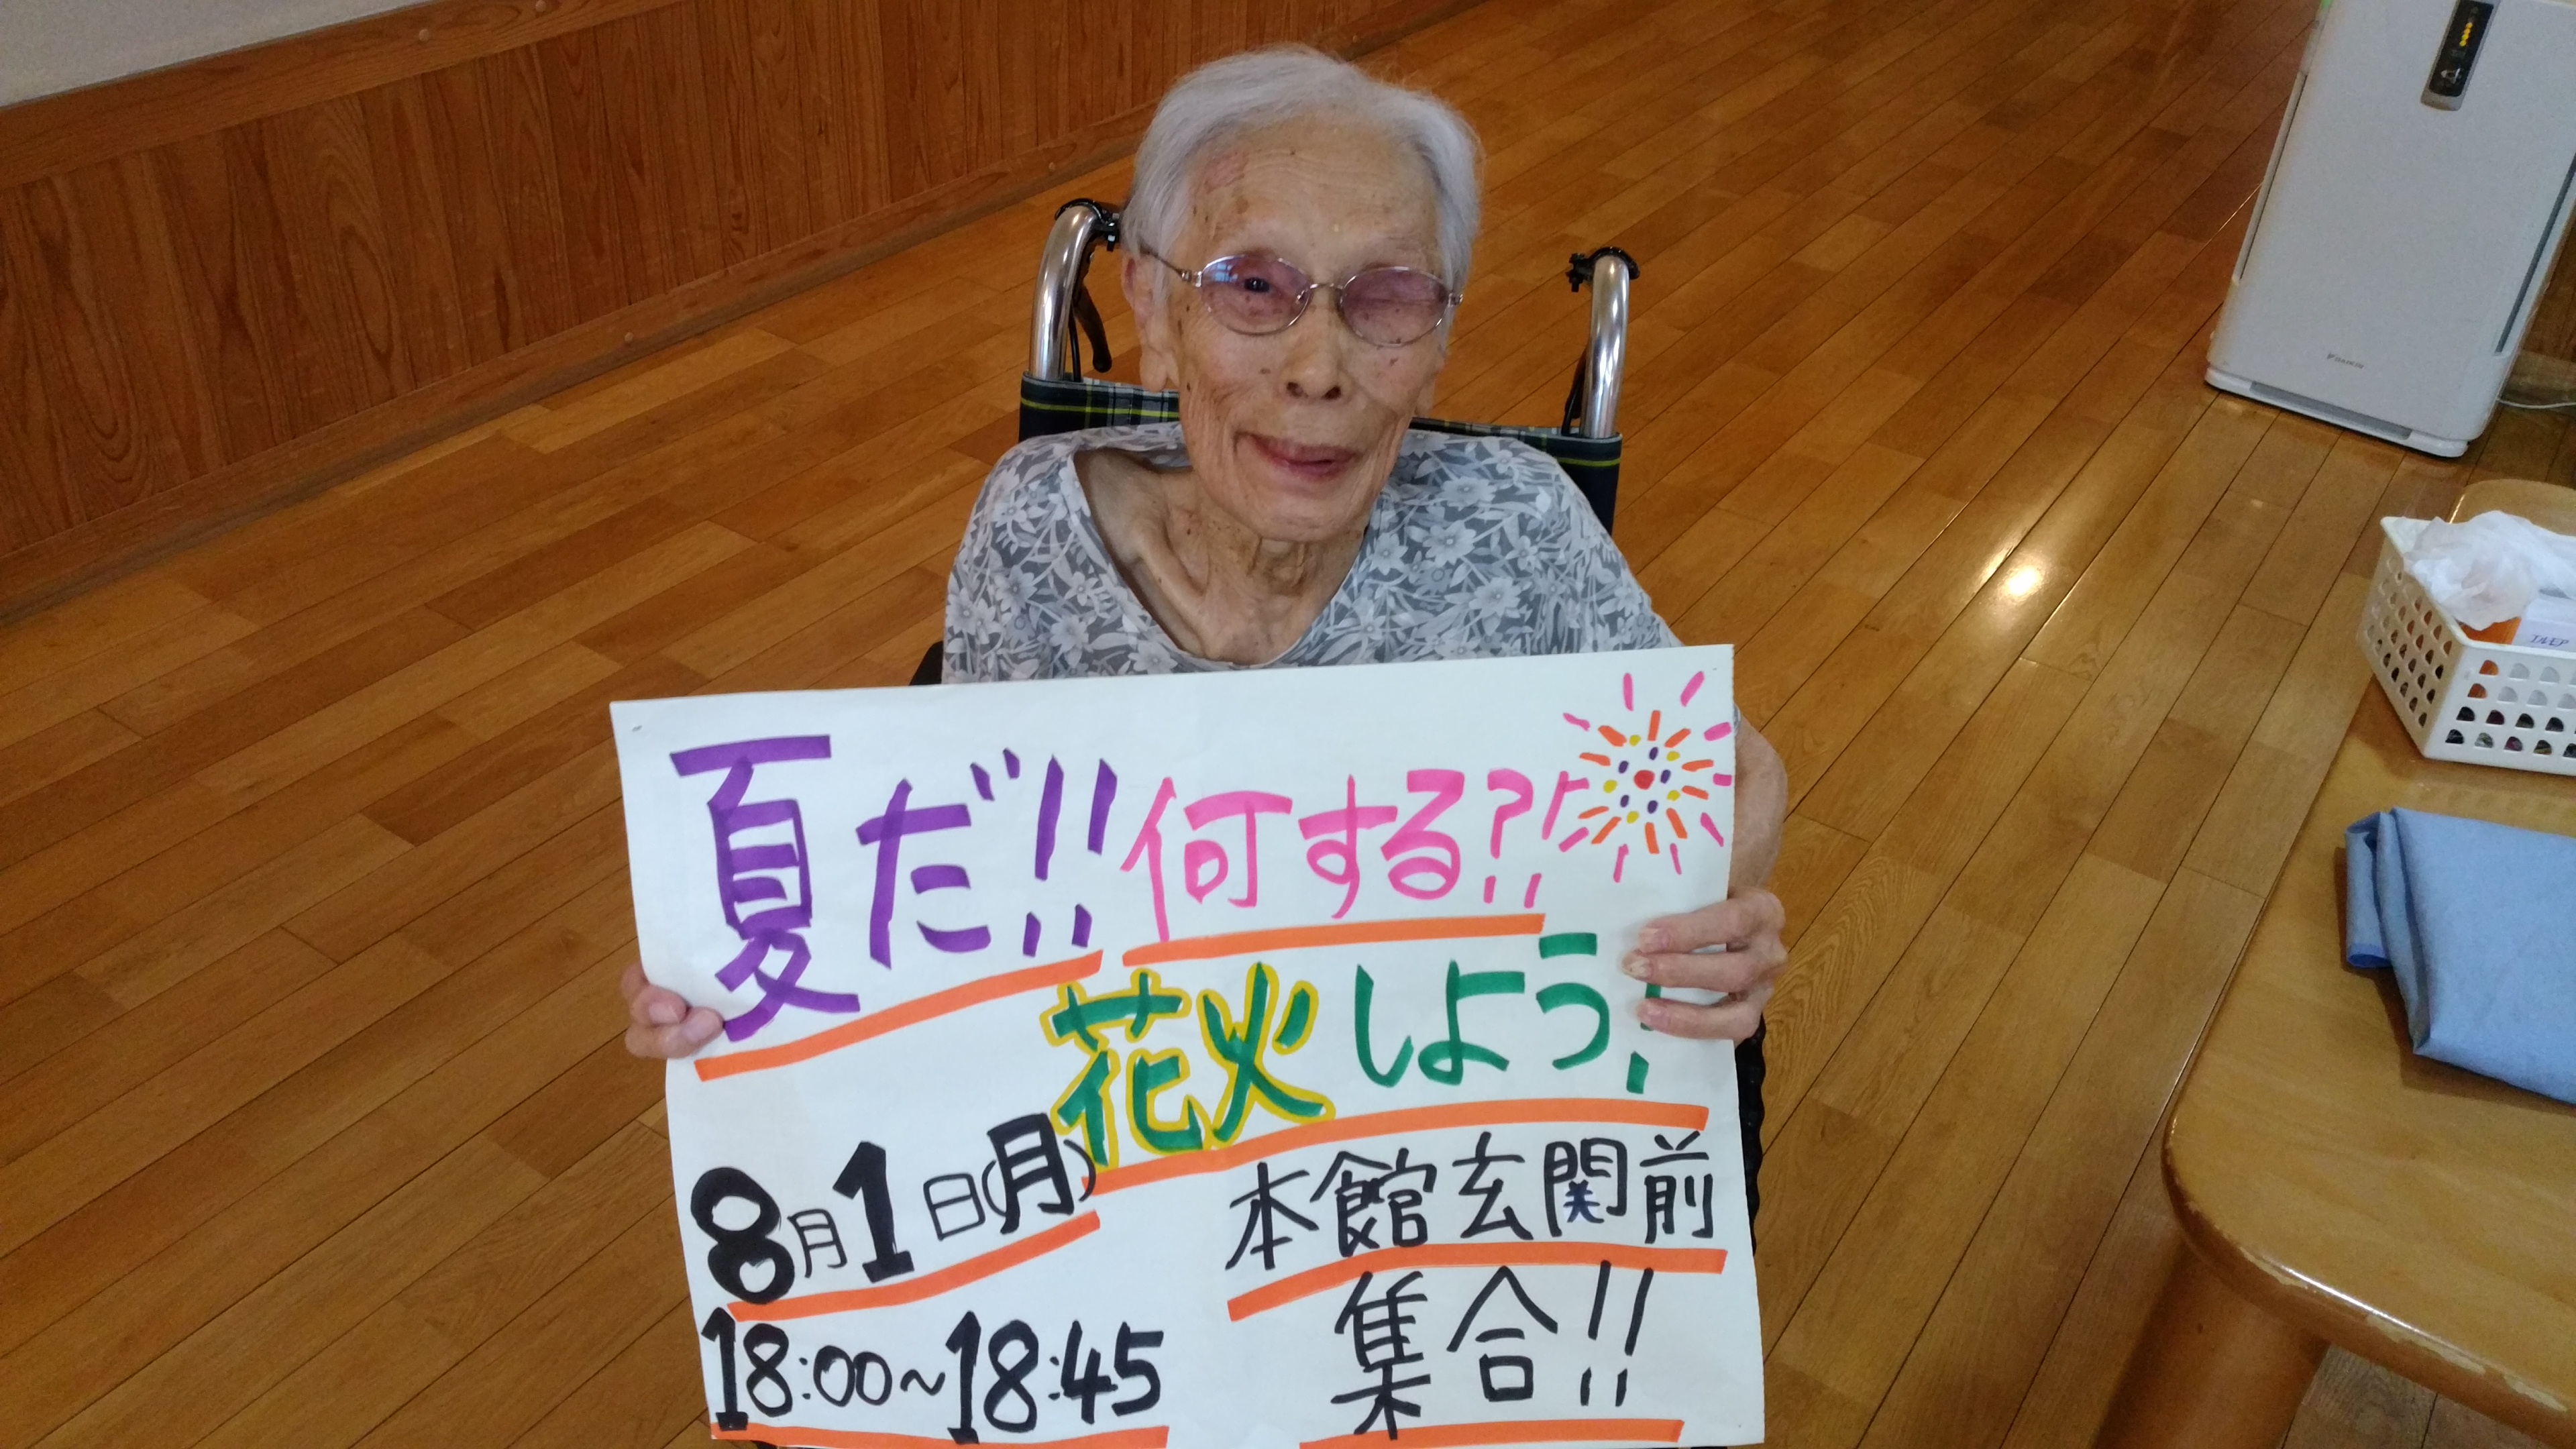 夏だ!!何する?!
花火しよう!
8月1日(月)
18:00~18:45
本館玄関前
集合!!
DAIKIN
エルモア